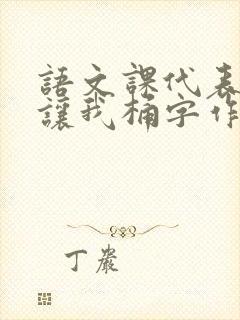 語文課代表
讓我桶字作
丁嚴